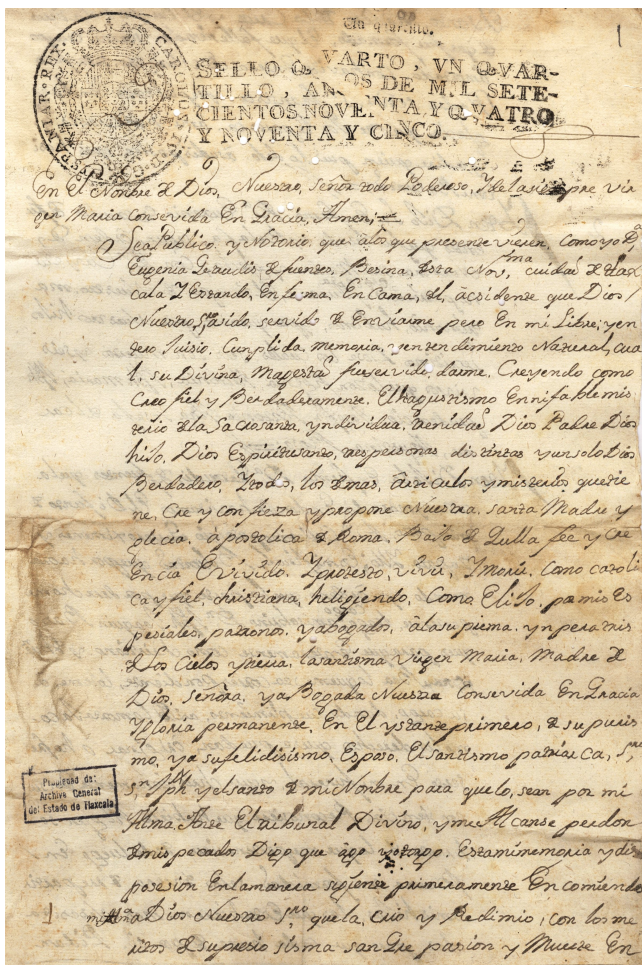 Un quartillo.
1
HISPANIAR. REX. CAROLUS
SELLO QVARTO, VN QVAR-
TILLO, AÑOS DE MIL SETE-
CIENTOS NOVENTA Y QVATRO
Y NOVENTA Y CINCO.
En El Nonbre de Dios, Nuestro, Señor todo Poderoso, Y de la sienpre vir
gen Maria Conservida En Gracia, Amen;
Sea Publico y Notorio que a los que presente vieren, Como yo Dª
Eugenia de fuentes, Besina, desta Novma cuidad de tlax
cala Y Estando, Enferma, En Cama, del, acsidente que Dios
Nuestro Sr a sido, servido de Enviarme pero En mi Libre, y en
tero Juisio, Cunplida, memoria, y entendimiento Natural, cua
l, su Divina, Magestad fue servido, darme, Creyendo como
Creo fiel y Berdaderamente, El Haugustismo Ennifable mis
terio de la SaCrosanta, yndividua, trenidad Dios Padre Dios
hiJo, Dios Espiritusanto, tres personas distintas y un solo Dios
Berdadero, Y todos, los demas, Articulos y misterios que tie
ne, Cre y confieza y propone Nuestra, santa Madre y
glecia, apostolica de Roma, BaJo de Culla fee y Cre
Encia E vivido, Y protesto, vivir, Y morir, Como catoli
ca y fiel, christiana, heligiendo, Como EliJo, pa mis Es
pesiales, patronos, y abogados, a la suprema, ynperatris
de Los Cielos y tierra, la santisma virgen Maria, Madre de
Dios, Señora, y aBogada Nuestra Conservida En Gracia
Y Gloria permanente, En El ystante primero, de su puris
mo, y a su felidisismo, Esposo, El santismo patriarca, Sr
Sn Jph y el santo de mi Nonbre para que lo, sean por mi
Alma, Ante El tribunal Divino, y me Alcanse perdon
de mis pecados Digo que ago y otorgo, Esta mi memoria y dis
posesion En la manera sigiente primeramente En comiendo
1 mi Alma a Dios Nuestro Sro que la, crio y Redimio, con los me
ritos de su presiosisma sanGre pasion y Muerte En
Propiedad del
Archivo General
del Estado de Tlaxcala